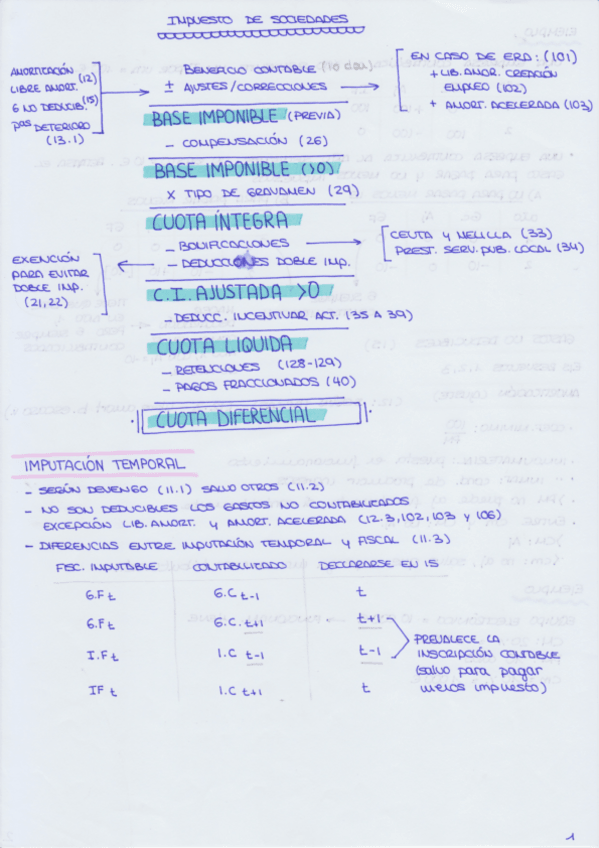 IMPUESTO DE SOCIEDADES
AMORTIZACIÓN (12)
LIBRE AMORT.
G NO DEDUCIB. (15)
pas DETERIORO
(13.1)
BENEFICIO CONTABLE (10
± AJUSTES/CORRECCIONES
EN CASO DE ERD: (101)
+ LIB. AMOR. CREACIÓN
EMPLEO (102)
+ AMORT. ACELERADA (103)
BASE IMPONIBLE (PREVIA)
- COMPENSACIÓN (26)
BASE IMPONIBLE (>0)
X TIPO DE GRAVAMEN (29)
CUOTA ÍNTEGRA
- BONIFICACIONES
- DEDUCCIONES DOBLE IMP.
CEUTA Y MELILLA (33)
PREST. SERV. PUB. LOCAL (34)
EXENCIÓN
PARA EVITAR
DOBLE IMP.
(21,22)
C.I. AJUSTADA >0
- DEDUCC. INCENTIVAR ACT. (35 A 39)
CUOTA LIQUIDA
- RETENCIONES (128-129)
- PAGOS FRACCIONADOS (40)
CUOTA DIFERENCIAL
IMPUTACIÓN TEMPORAL
- SEGÚN DEVENGO (11.1) SALVO OTROS (11.2)
- NO SON DEDUCIBLES LOS GASTOS NO CONTABILIZADOS
EXCEPCIÓN LIB. AMORT. Y AMORT. ACELERADA (12.3,102,103 Y 106)
- DIFERENCIAS ENTRE IMPUTACIÓN TEMPORAL Y FISCAL (11.3)
FISC. IMPUTABLE CONTABILIZADO DECLARARSE EN IS
G.F t G.C t-1 t
G.F t G.C. t+1 t+1
I.F t I.C t-1 t-1
IF t I.C t+1 t
PREVALECE LA
INSCRIPCIÓN CONTABLE
(salvo para pagar
menos impuesto)
1